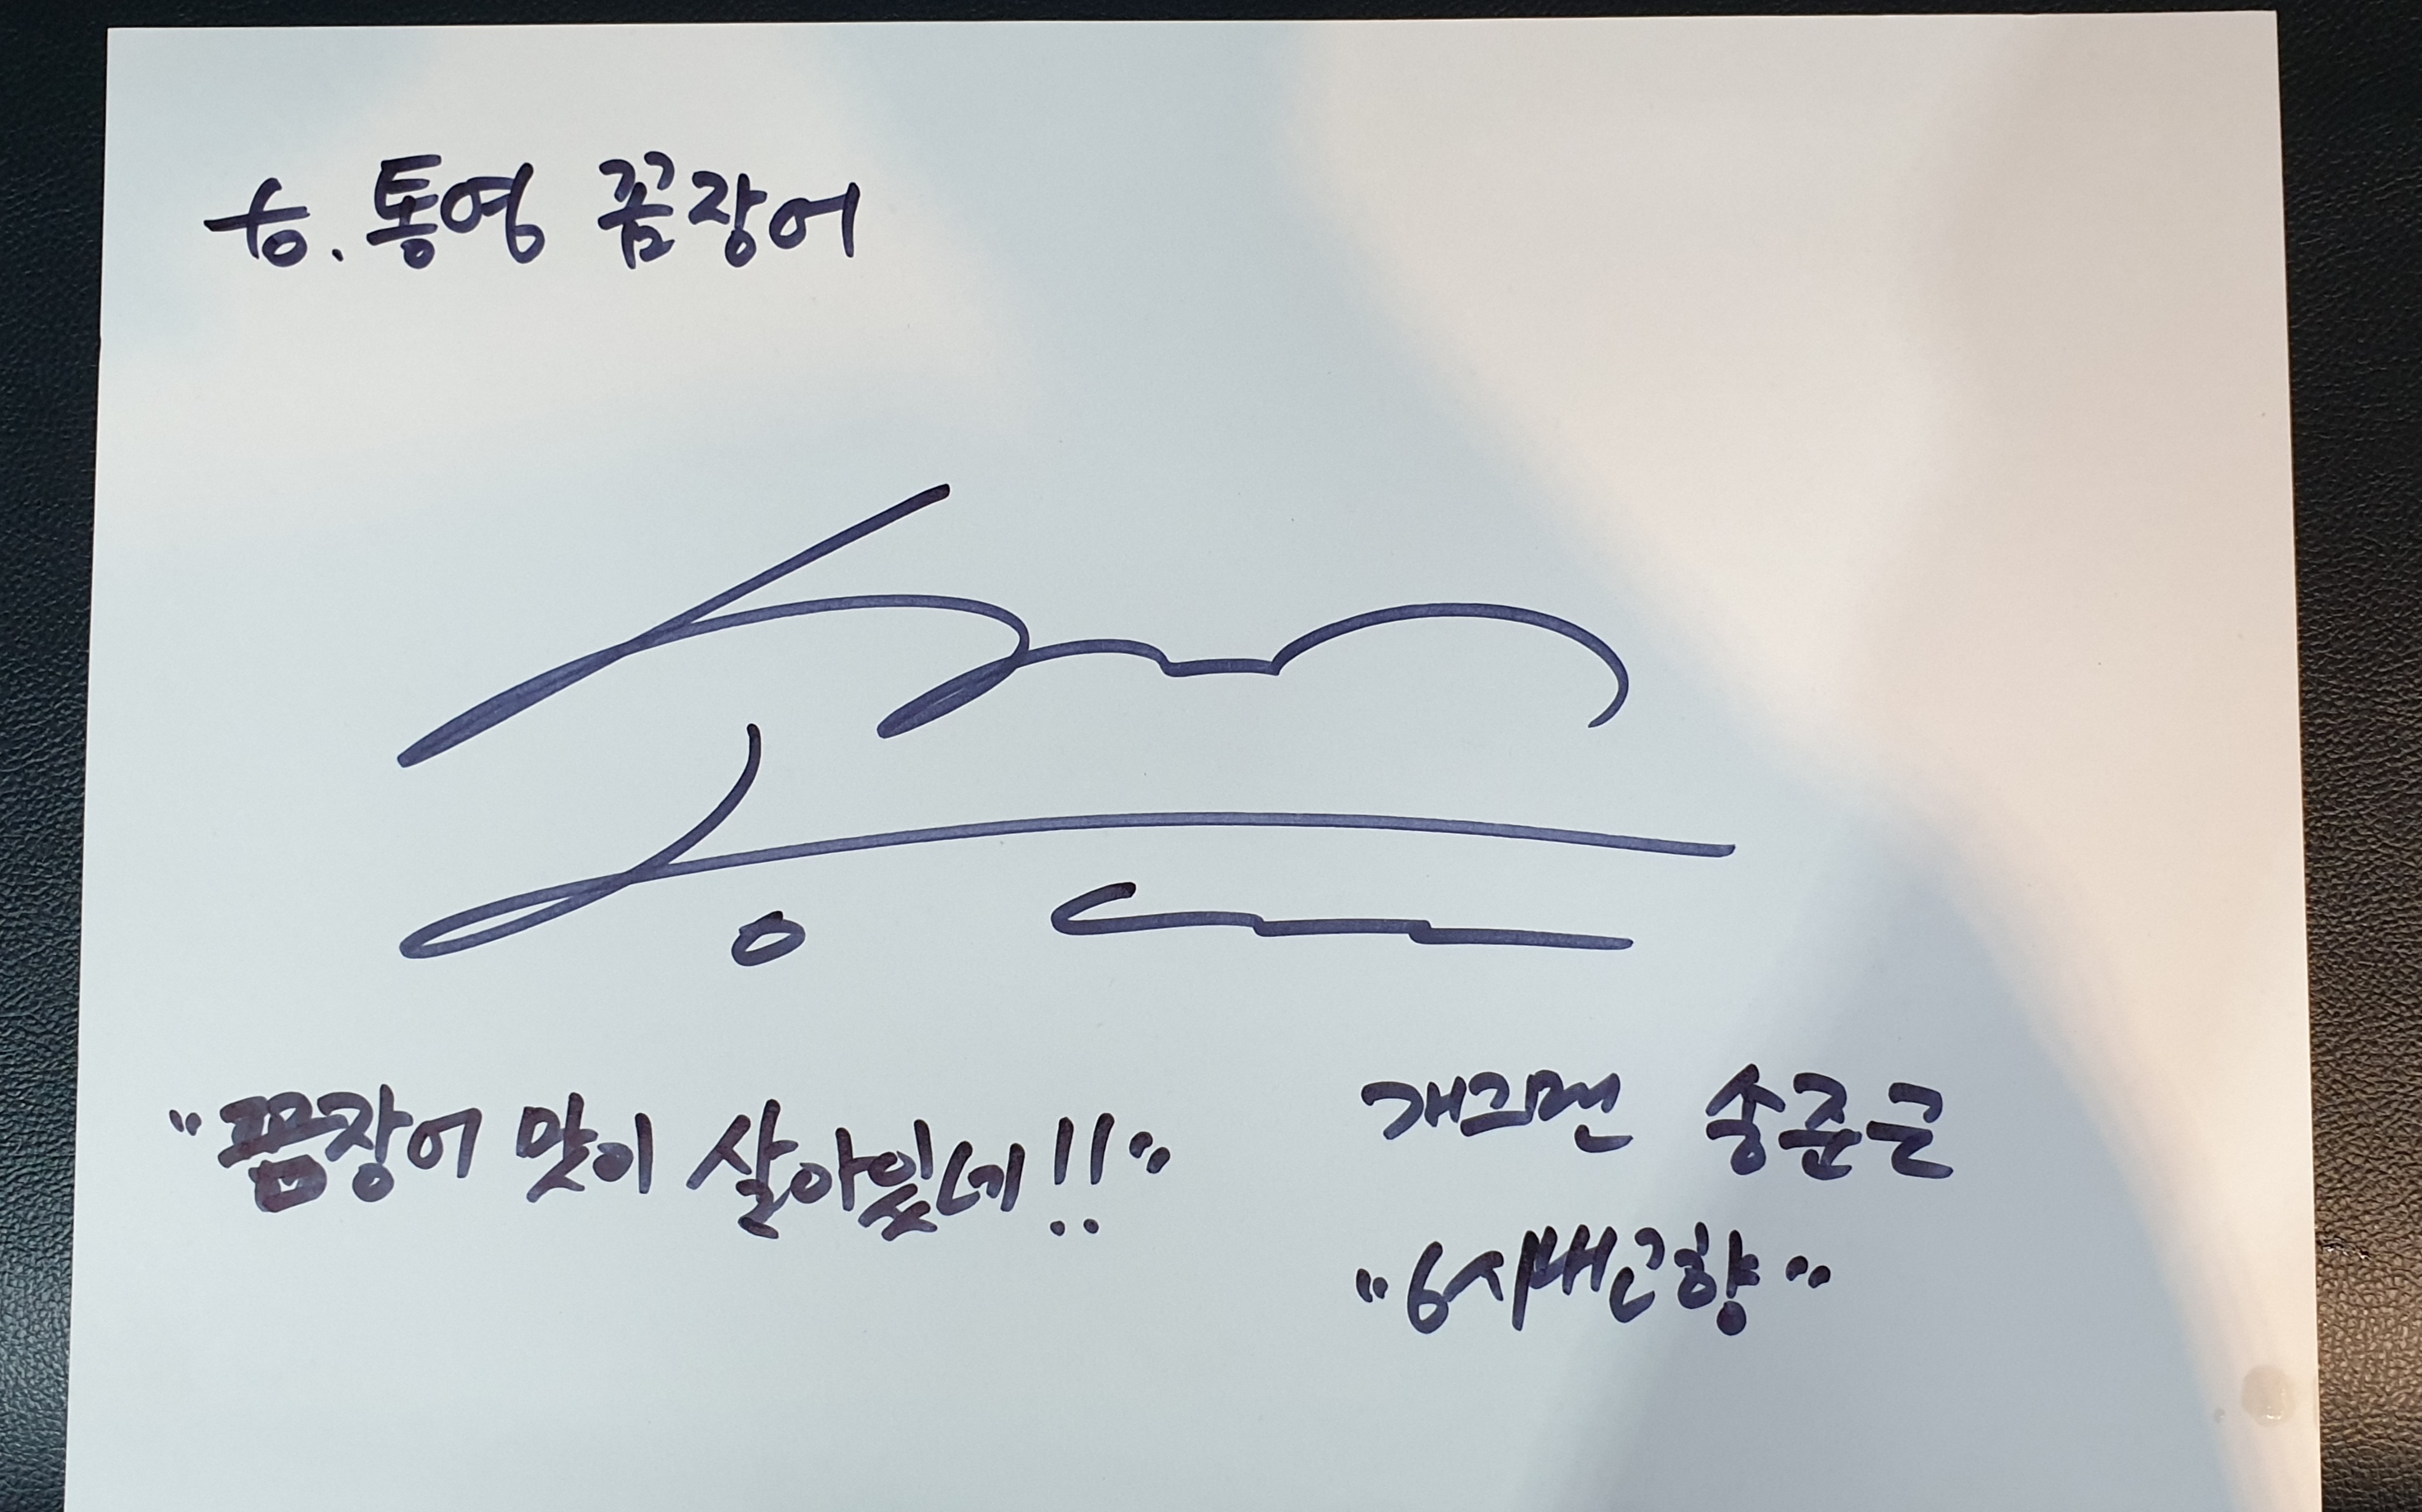 to. 통영 꼼장어
"꼼장어 맛이 살아있네!!"
개그맨 송준근
"6시내고향"